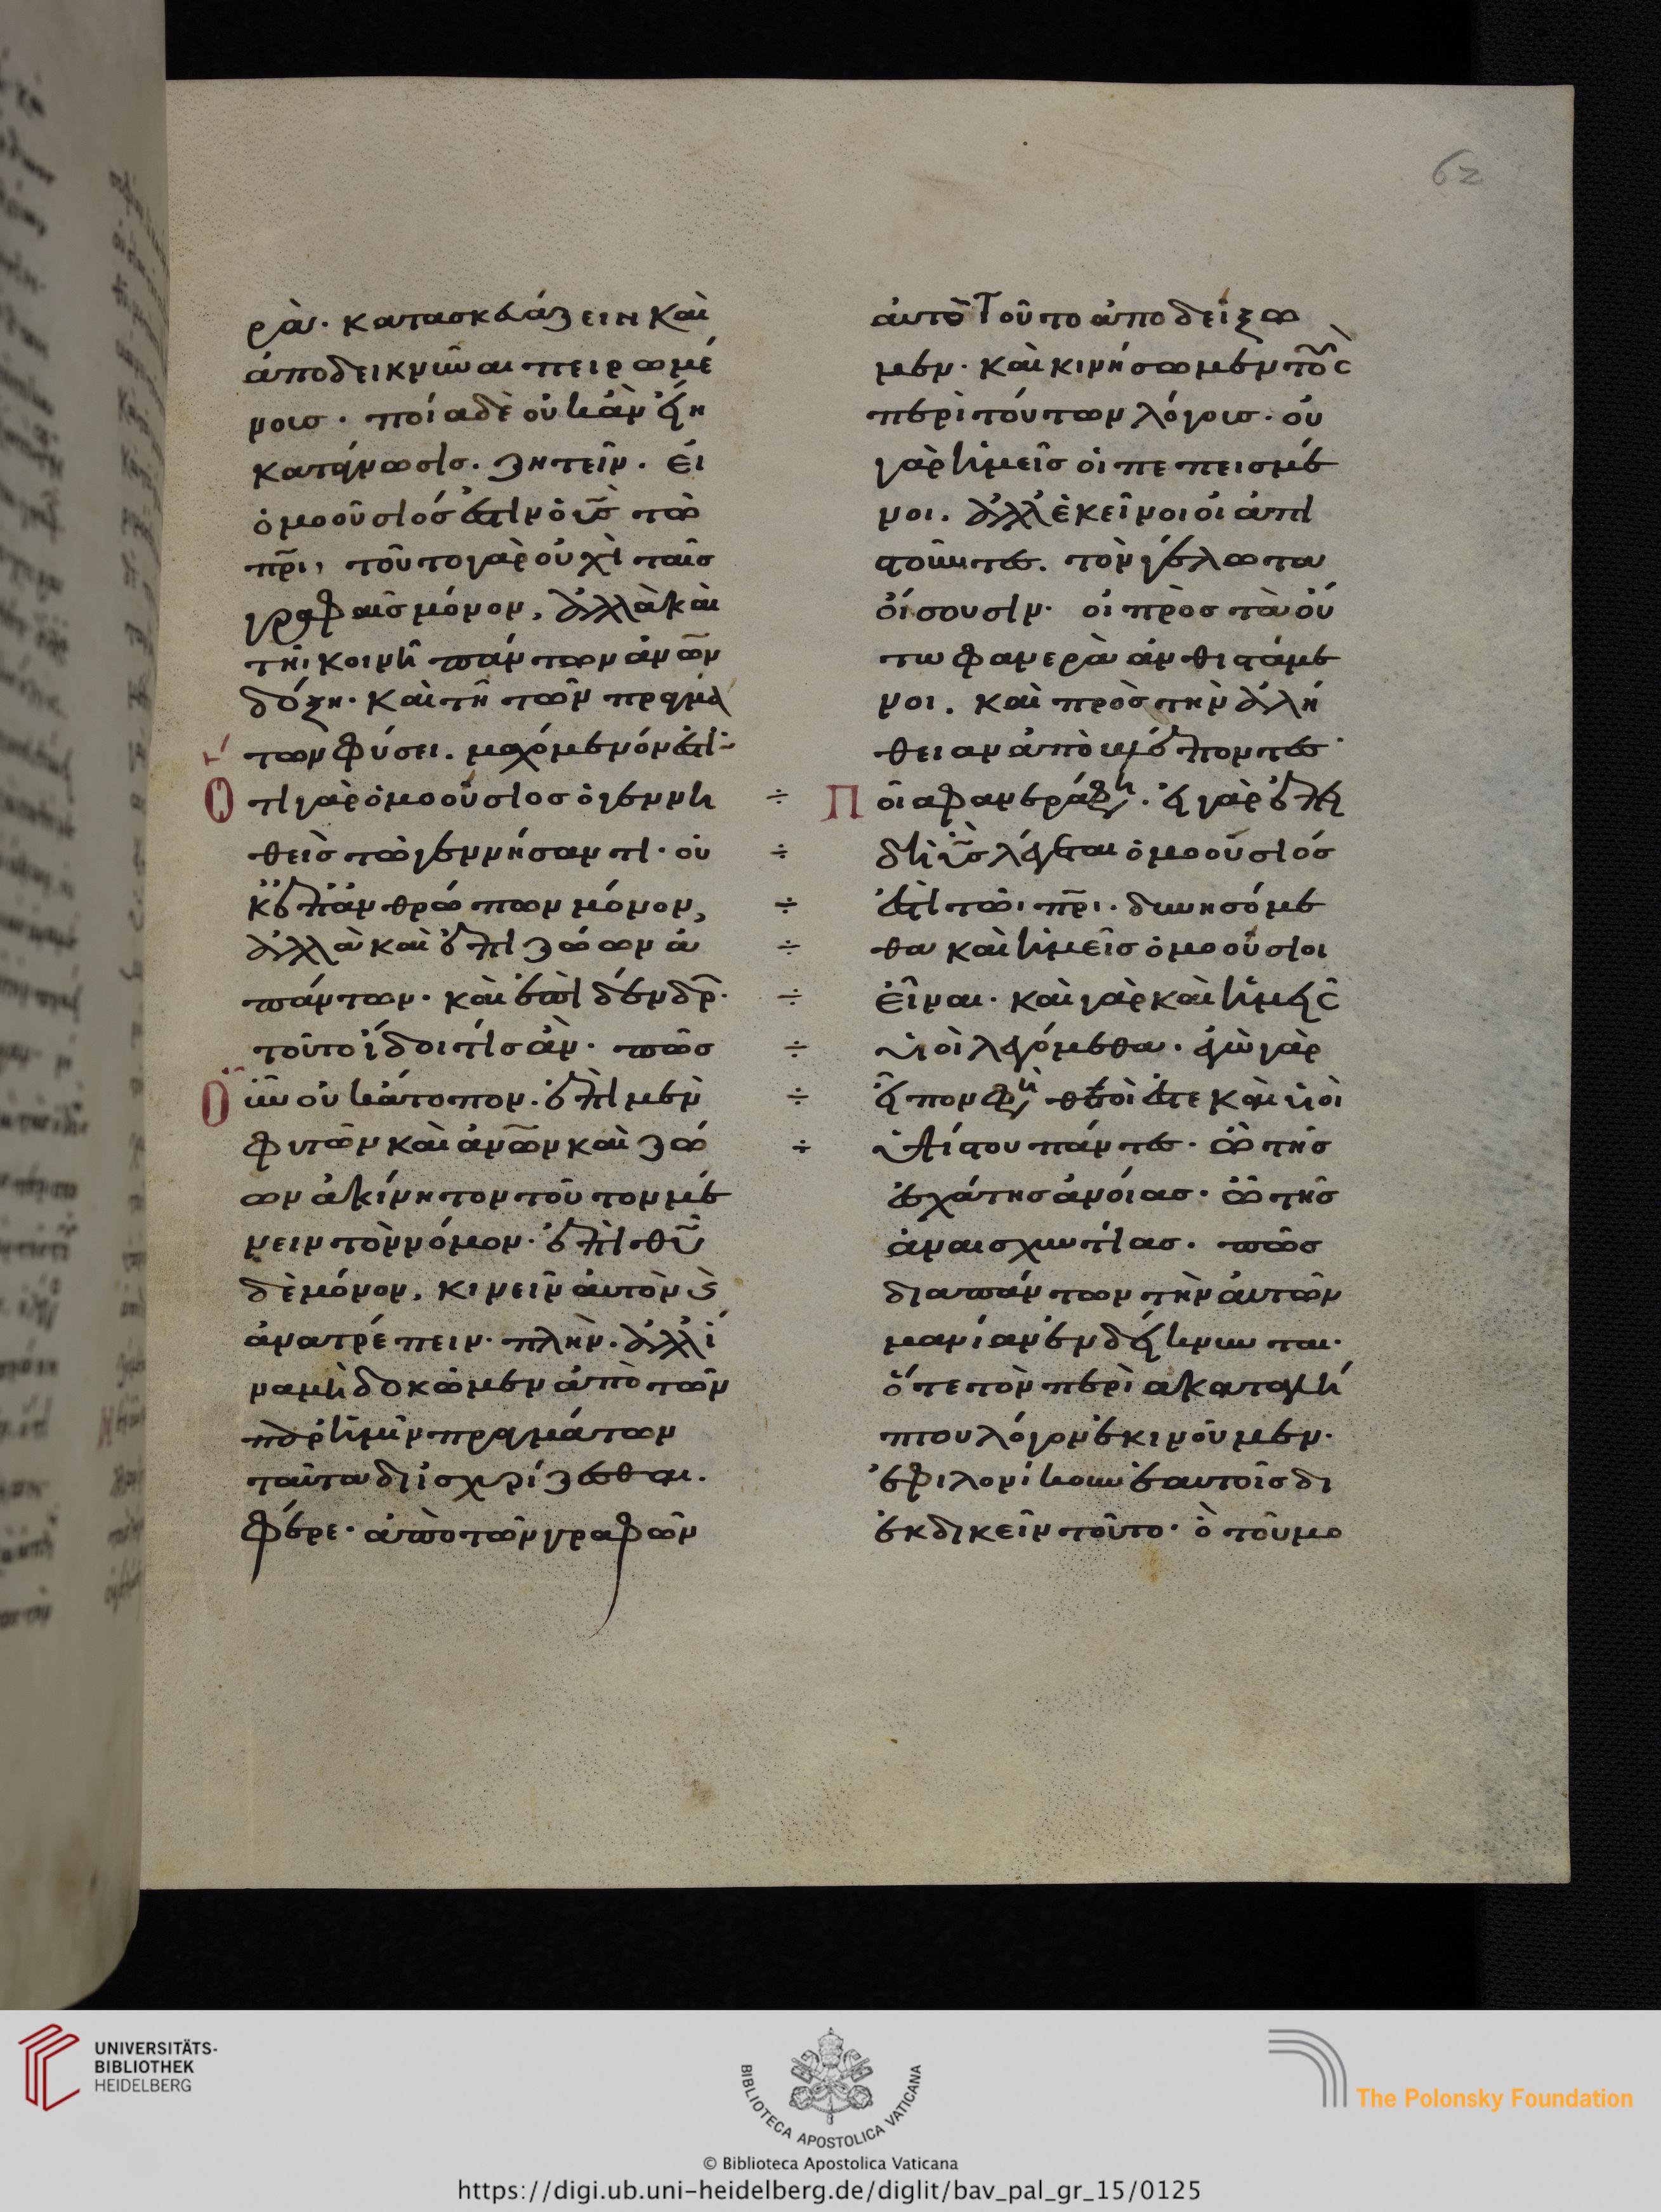 62
ρὰ· κατασκευάζειν καὶ
ἀποδεικνύναι πειρωμέ
νοις· ποία δὲ οὐκ ἂν εἴη
κατάγνωσις. ζητεῖν. εἰ
ὁμοούσιός ἐστιν ὁ υ̅ς̅ τῶ
π̅ρ̅ι̅, τοῦτο γὰρ οὐχὶ ταῖς
γραφαῖς μόνον, ἀλλὰ καὶ
τῆι κοινῆ πάντων ἀν̅ω̅ν̅
δόξη· καὶ τῆ τῶν πραγμά
των φύσει. μαχόμενόν ἐστι·
Ὅτι γὰρ ὁμοούσιος ὁ γεννη
θεὶς τῶ γεννήσαντι· οὐ
κ ἐπ' ἀνθρώπων μόνον,
ἀλλὰ καὶ ἐπὶ ζώων ἁ
πάντων· καὶ ἐπὶ δένδρ·
τοῦτο ἴδοι τίς ἄν· πῶς
οὖν οὐκ ἄτοπον. ἐπὶ μὲν
φυτῶν καὶ ἀν̅ω̅ν̅ καὶ ζώ
ων ἀκίνητον τοῦτον μέ
νειν τὸν νόμον· ἐπὶ θ̅υ̅
δὲ μόνον, κινεῖν αὐτὸν ϛ̀
ἀνατρέπειν· πλὴν. ἀλλ' ἵ
να μὴ δοκῶμεν ἀπὸ τῶν
παρ' ἡμῖν πραγμάτων
ταῦτα διϊσχυρίζεσθαι.
φέρε· ἀπὸ τῶν γραφῶν
αὐτὸ τοῦτο ἀποδείξω
μεν· καὶ κινήσωμεν τοὺς
περὶ τούτων λόγους. οὐ
γὰρ ἡμεῖς οἱ πεπεισμέ
νοι. ἀλλ' ἐκεῖνοι οἱ ἀπι
στοῦντες. τὸν γέλωτα
οἴσουσιν· οἱ πρὸς τὰ οὕ
τω φανερὰ ἀνθιστάμε
νοι. καὶ πρὸς τὴν ἀλή
θειαν ἀποβλέποντες·
÷ Ποῖα φανερά φη. εἰ γὰρ ἐπει
÷ δὴ υ̅ς̅ λέγεται ὁμοούσιός
÷ ἐστι τῶι π̅ρ̅ι̅. δυνησόμε
÷ θα καὶ ἡμεῖς ὁμοούσιοι
÷ εἶναι· καὶ γὰρ καὶ ἡμεῖς
÷ υἱοὶ λεγόμεθα. ἐγὼ γὰρ
÷ εἶπον φη θεοί ἐστε καὶ υἱοὶ
÷ ὑψίστου πάντες. ὢ τῆς
ἐσχάτης ἀνοίας. ὢ τῆς
ἀναισχυντίας. πῶς
διὰ πάντων τὴν αὐτῶν
μανίαν ἐνδείκνυνται·
ὅτε τὸν περὶ ἀκαταλή
πτου λόγον ἐκινοῦμεν.
ἐφιλονίκουν ἑαυτοῖς δι
εκδικεῖν τοῦτο· ὃ τοῦ μο
UNIVERSITÄTS-
BIBLIOTHEK
HEIDELBERG
BIBLIOTECA APOSTOLICA VATICANA
The Polonsky Foundation
© Biblioteca Apostolica Vaticana
https://digi.ub.uni-heidelberg.de/diglit/bav_pal_gr_15/0125